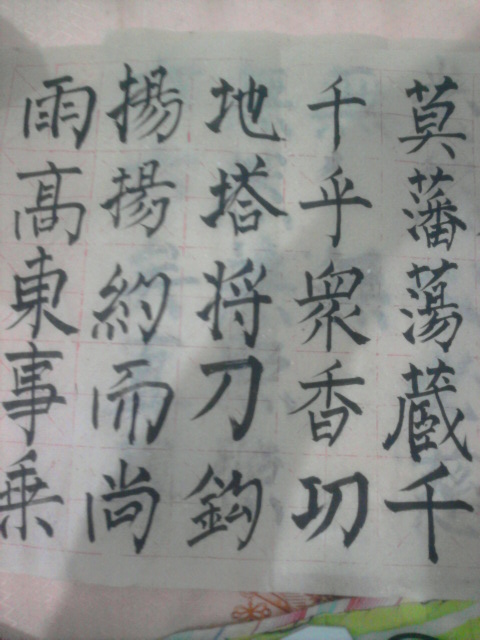 莫藩蕩蔵千
千乎衆香功
地塔将刀鈎
揚揚約而尚
雨髙東事乗